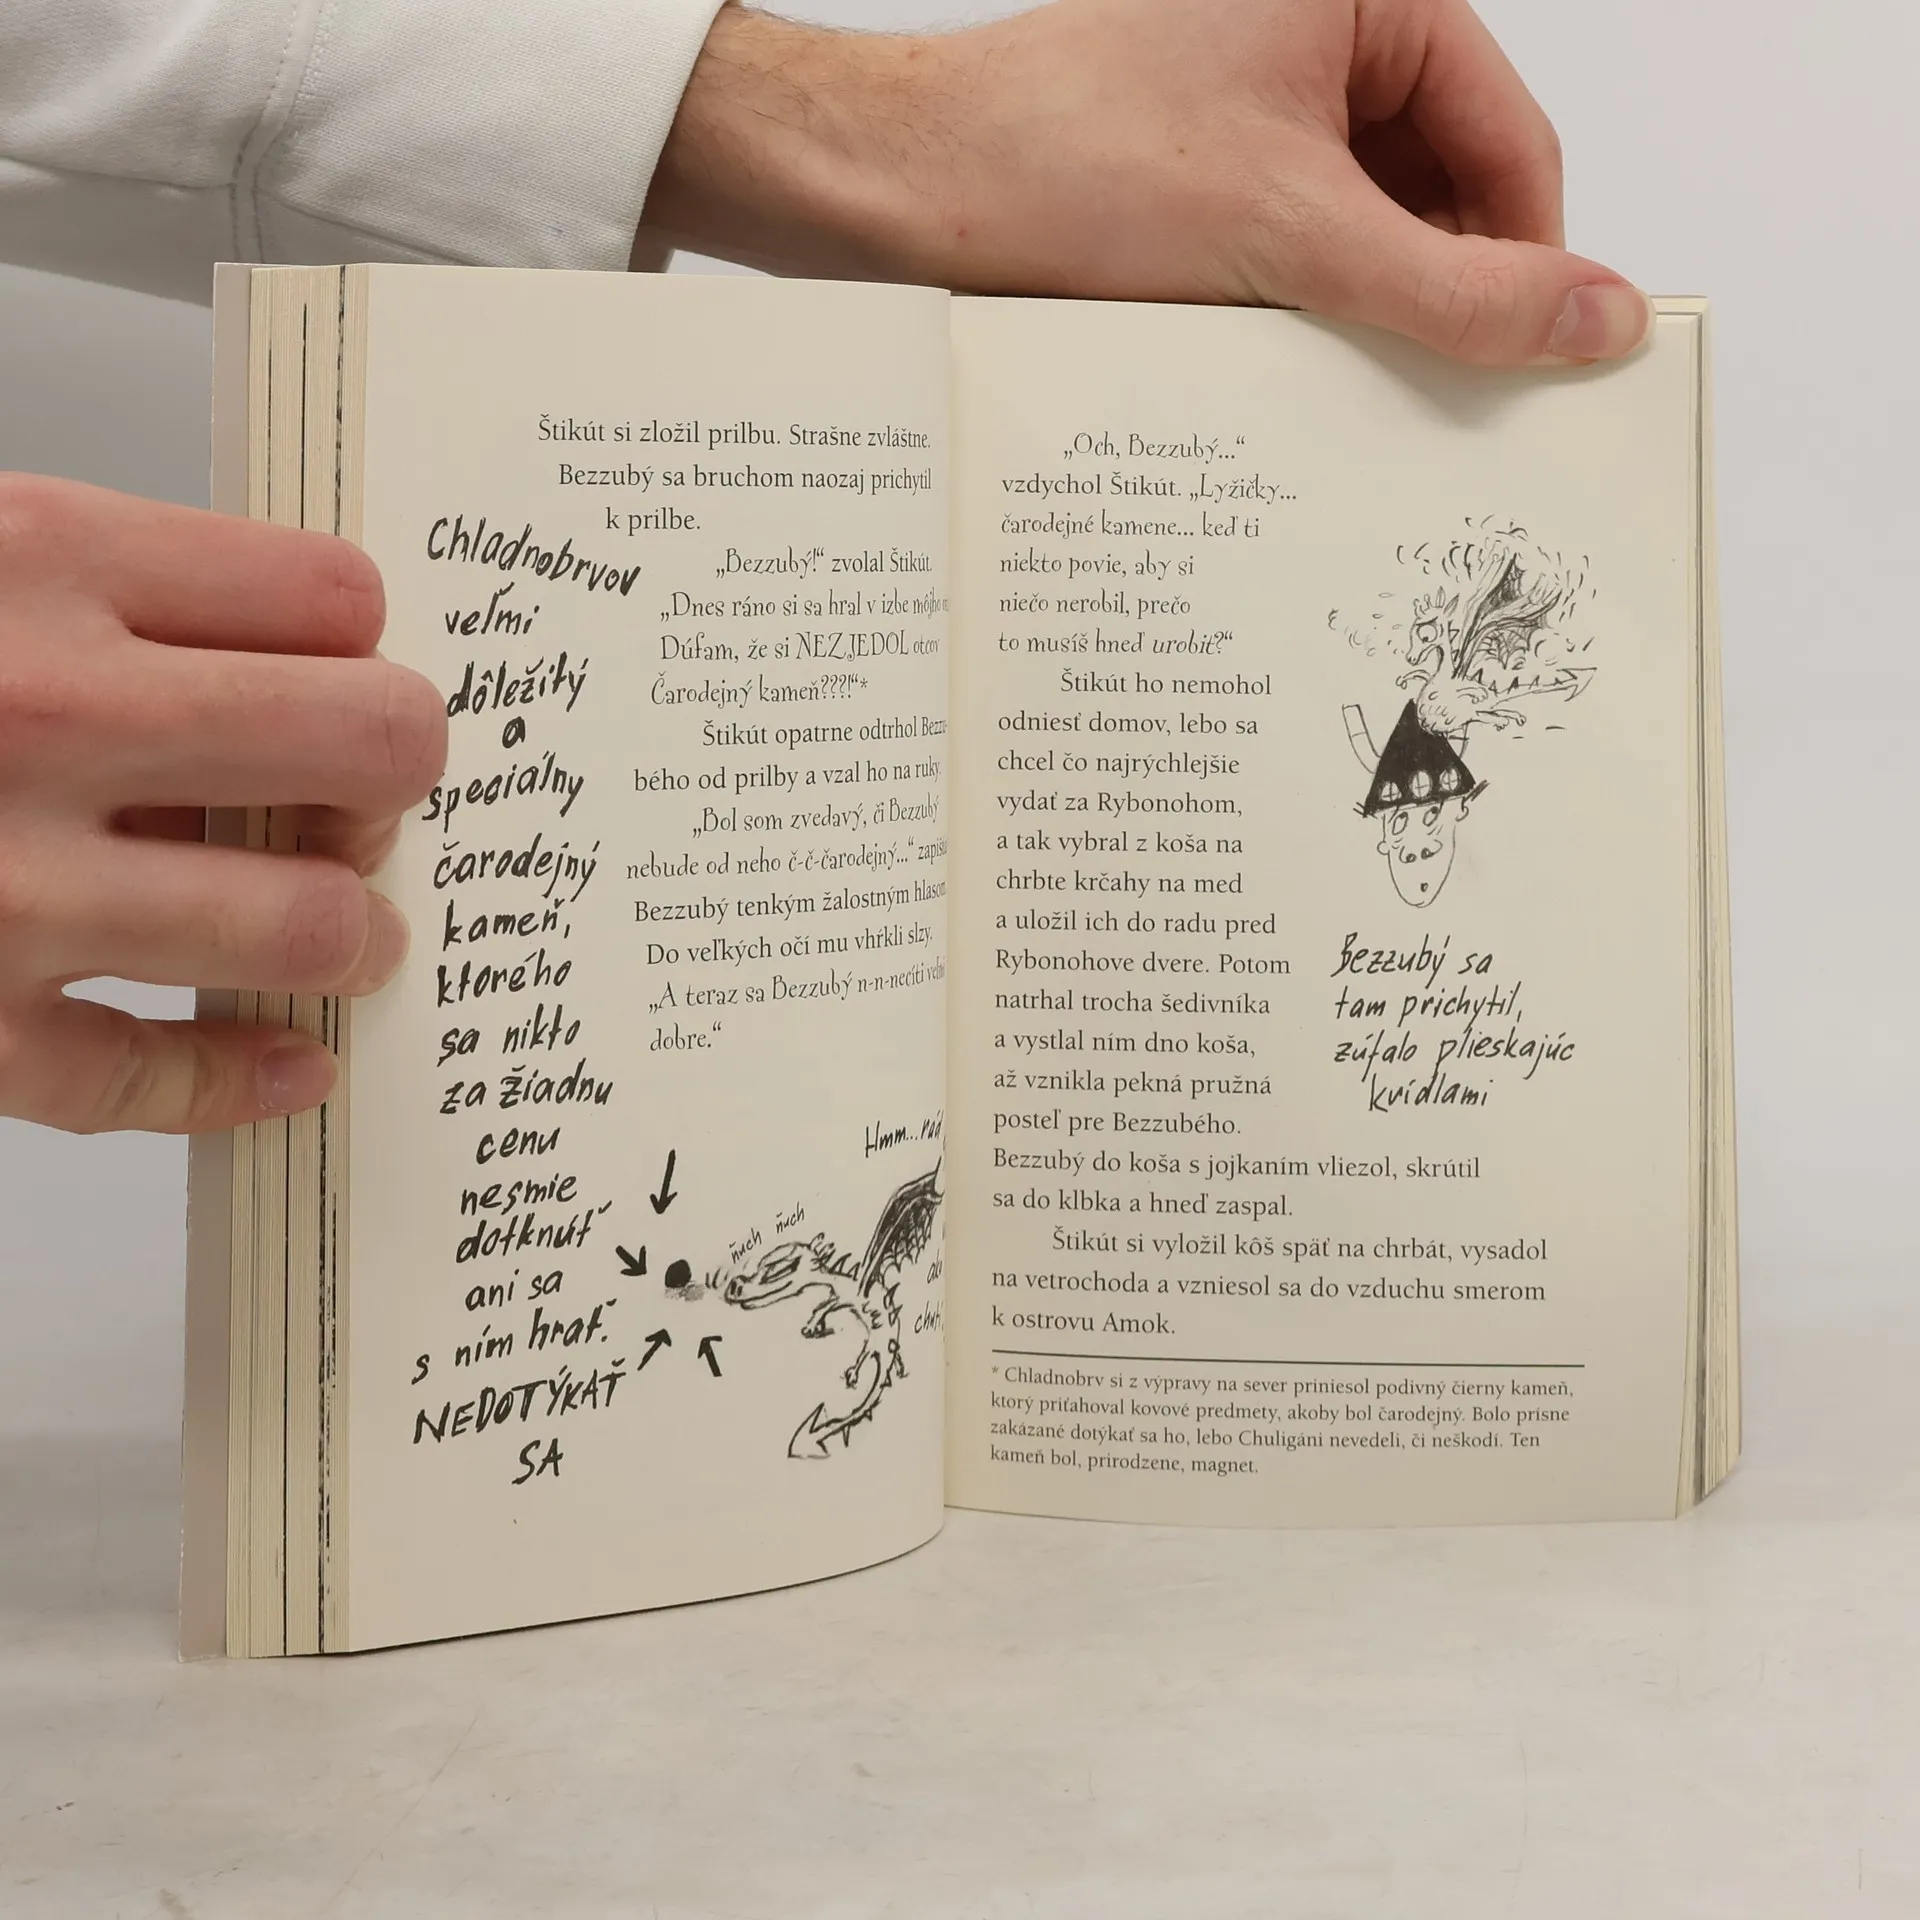 Štikút si zložil prilbu. Strašne zvláštne.
Bezzubý sa bruchom naozaj prichytil
k prilbe.
„Bezzubý!“ zvolal Štikút.
„Dnes ráno si sa hral v izbe môjho
Dúfam, že si NEZJEDOL otcov
Čarodejný kameň???!“*
Štikút opatrne odtrhol Bezzu-
bého od prilby a vzal ho na ruky.
„Bol som zvedavý, či Bezzubý
nebude od neho č-č-čarodejný...“
Bezzubý tenkým žalostným hlasom.
Do veľkých očí mu vhŕkli slzy.
„A teraz sa Bezzubý n-n-necíti veľmi
dobre.“
Chladnobrvov
veľmi
dôležitý
a
špeciálny
čarodejný
kameň,
ktorého
sa nikto
za žiadnu
cenu
nesmie
dotknúť
ani sa
s ním hrať.
NEDOTÝKAŤ
SA
Hmm...
ňuch ňuch
„Och, Bezzubý...“
vzdychol Štikút. „Lyžičky...
čarodejné kamene... keď ti
niekto povie, aby si
niečo nerobil, prečo
to musíš hneď urobiť?“
Štikút ho nemohol
odniesť domov, lebo sa
chcel čo najrýchlejšie
vydať za Rybonohom,
a tak vybral z koša na
chrbte krčahy na med
a uložil ich do radu pred
Rybonohove dvere. Potom
natrhal trocha šedivníka
a vystlal ním dno koša,
až vznikla pekná pružná
posteľ pre Bezzubého.
Bezzubý do koša s jojkaním vliezol, skrútil
sa do klbka a hneď zaspal.
Štikút si vyložil kôš späť na chrbát, vysadol
na vetrochoda a vzniesol sa do vzduchu smerom
k ostrovu Amok.
Bezzubý sa
tam prichytil,
zúfalo plieskajúc
krídlami
* Chladnobrv si z výpravy na sever priniesol podivný čierny kameň,
ktorý priťahoval kovové predmety, akoby bol čarodejný. Bolo prísne
zakázané dotýkať sa ho, lebo Chuligáni nevedeli, či neškodí. Ten
kameň bol, prirodzene, magnet.